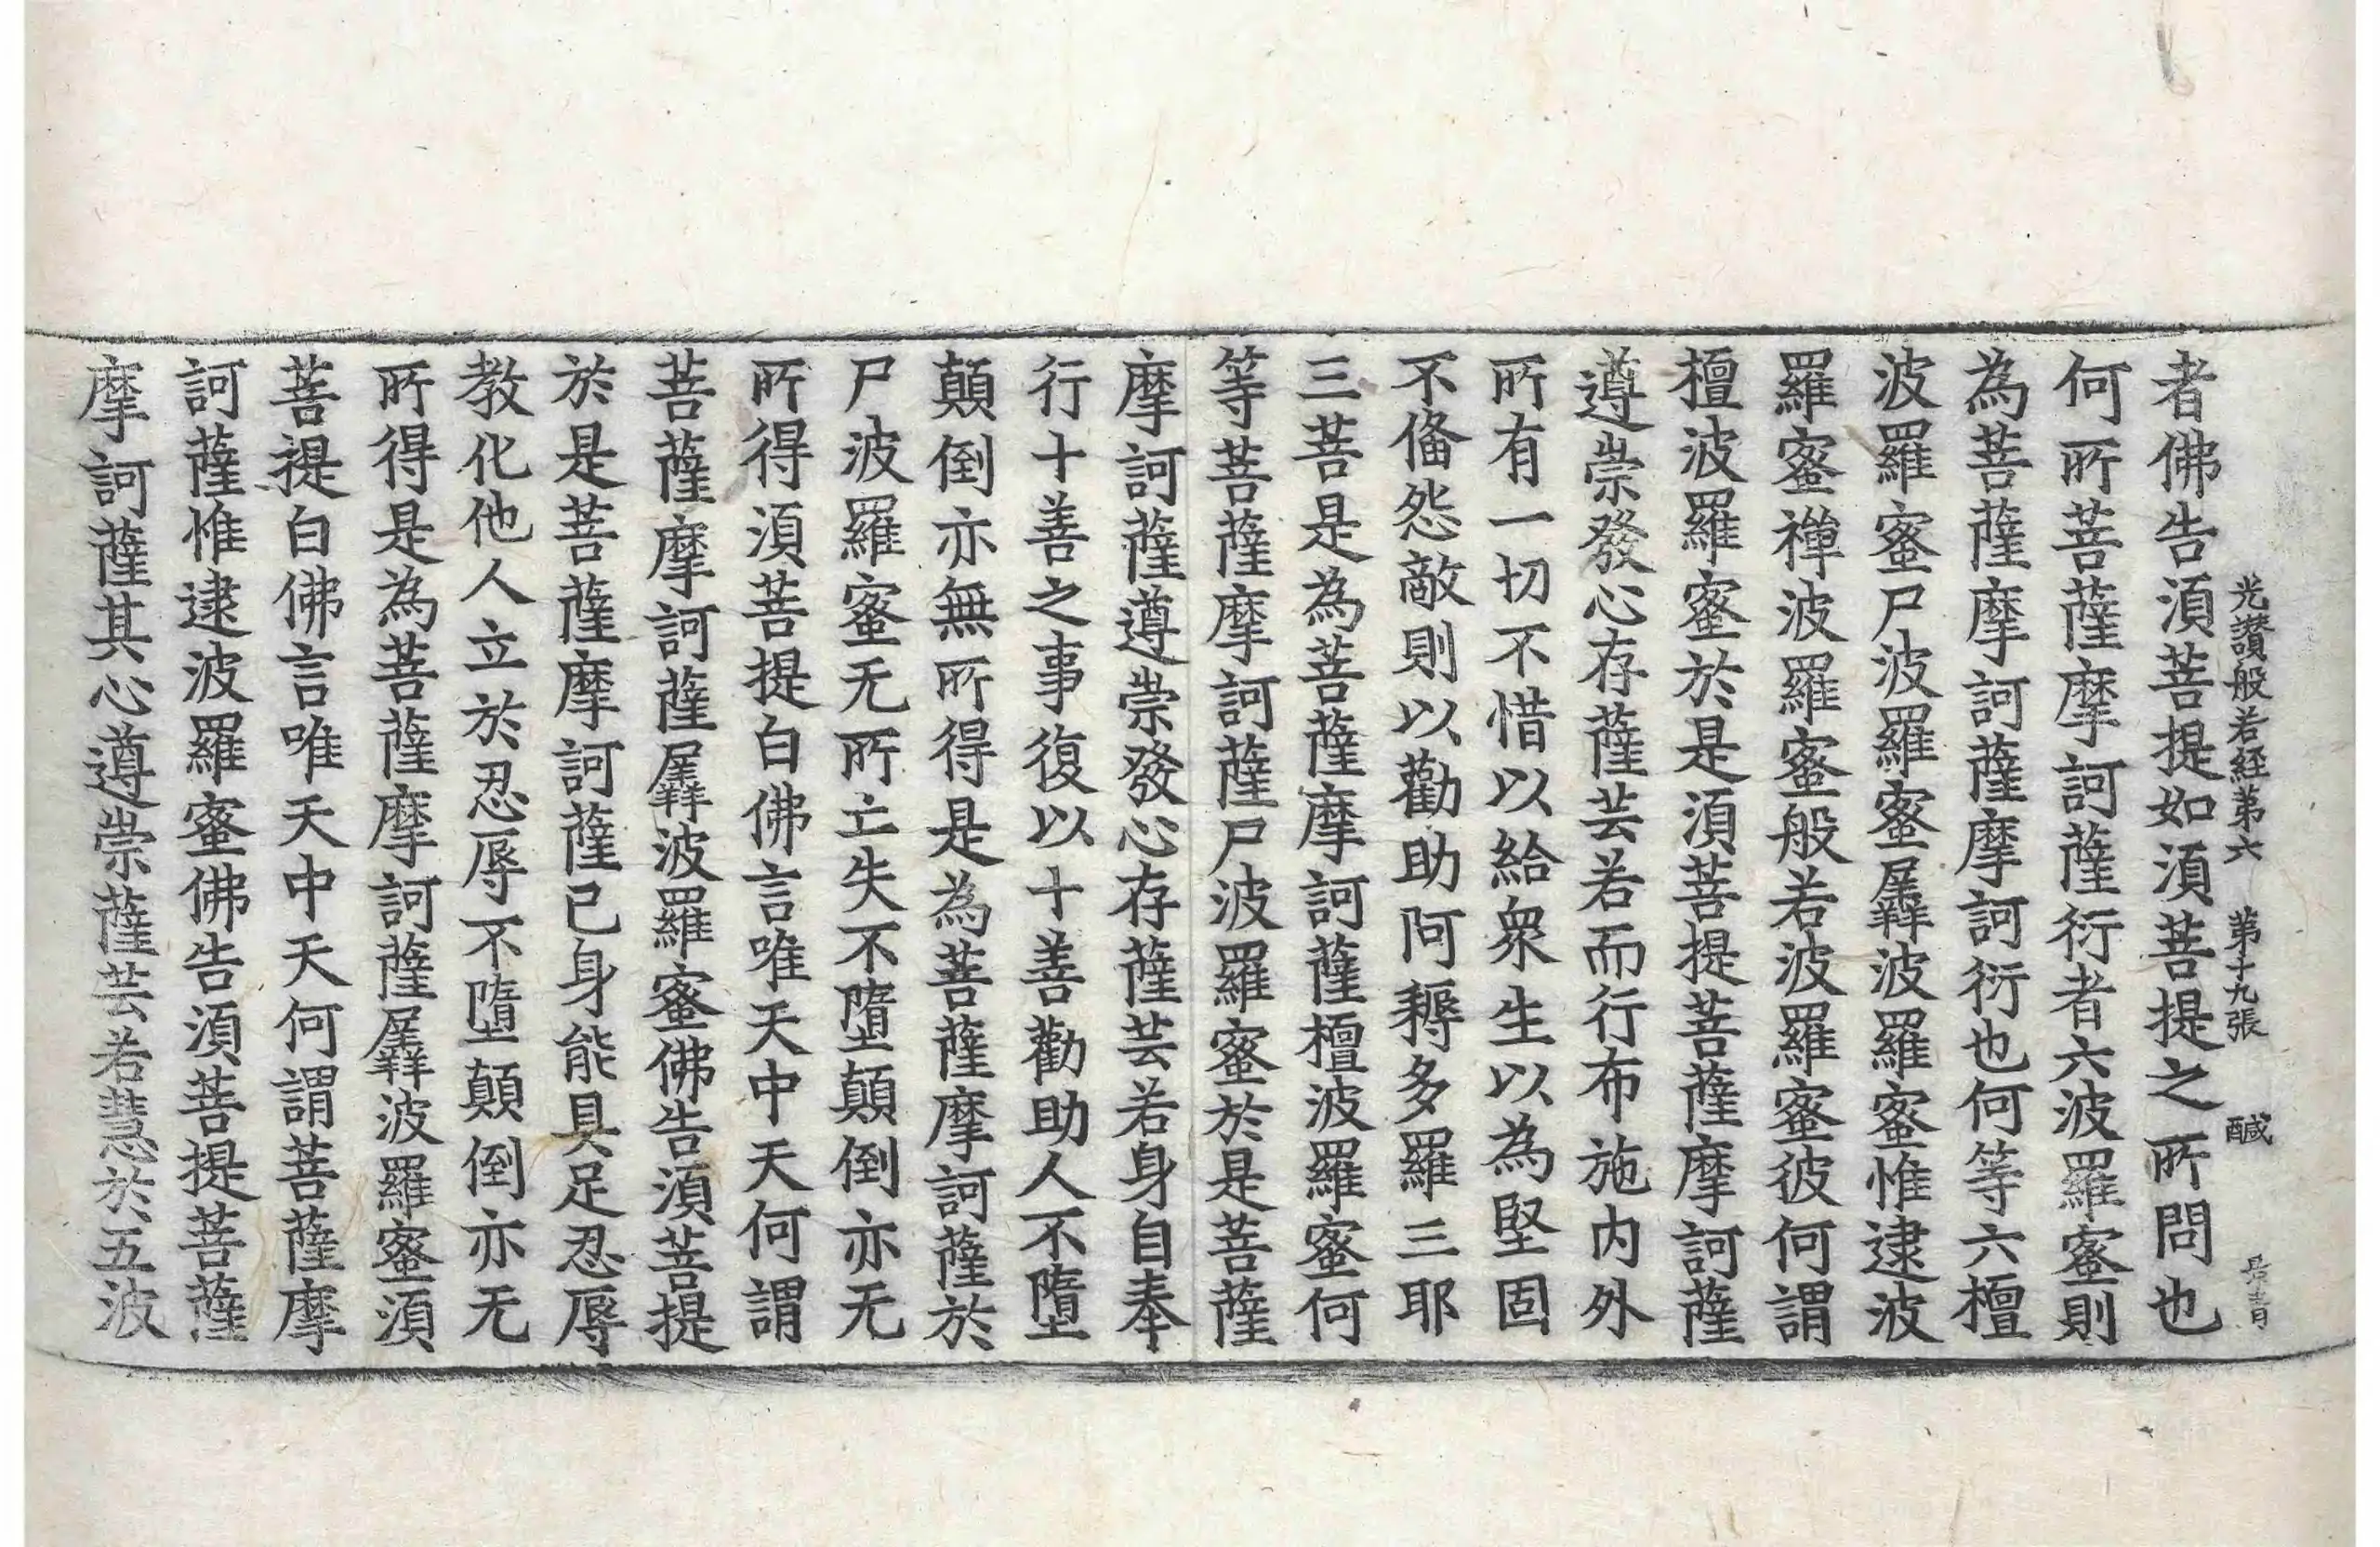 光讃般若経第六 第十九張 醎
者佛告湏菩提如湏菩提之所問也
何所菩薩摩訶薩衍者六波羅蜜則
為菩薩摩訶薩摩訶衍也何等六檀
波羅蜜尸波羅蜜羼波羅蜜惟逮波
羅蜜禪波羅蜜般若波羅蜜彼何謂
檀波羅蜜於是湏菩提菩薩摩訶薩
遵崇發心存薩芸若而行布施内外
所有一切不惜以給衆生以為堅固
不俻怨敵則以勸助阿耨多羅三耶
三菩是為菩薩摩訶薩檀波羅蜜何
等菩薩摩訶薩尸波羅蜜於是菩薩
摩訶薩遵崇發心存薩芸若身自奉
行十善之事復以十善勸助人不墮
顛倒亦無所得是為菩薩摩訶薩於
尸波羅蜜无所亡失不墮顛倒亦无
所得湏菩提白佛言唯天中天何謂
菩薩摩訶薩羼波羅蜜佛告湏菩提
於是菩薩摩訶薩已身能具足忍辱
教化他人立於忍辱不墮顛倒亦无
所得是為菩薩摩訶薩羼波羅蜜湏
菩提白佛言唯天中天何謂菩薩摩
訶薩惟逮波羅蜜佛告湏菩提菩薩
摩訶薩其心遵崇薩芸若慧於五波